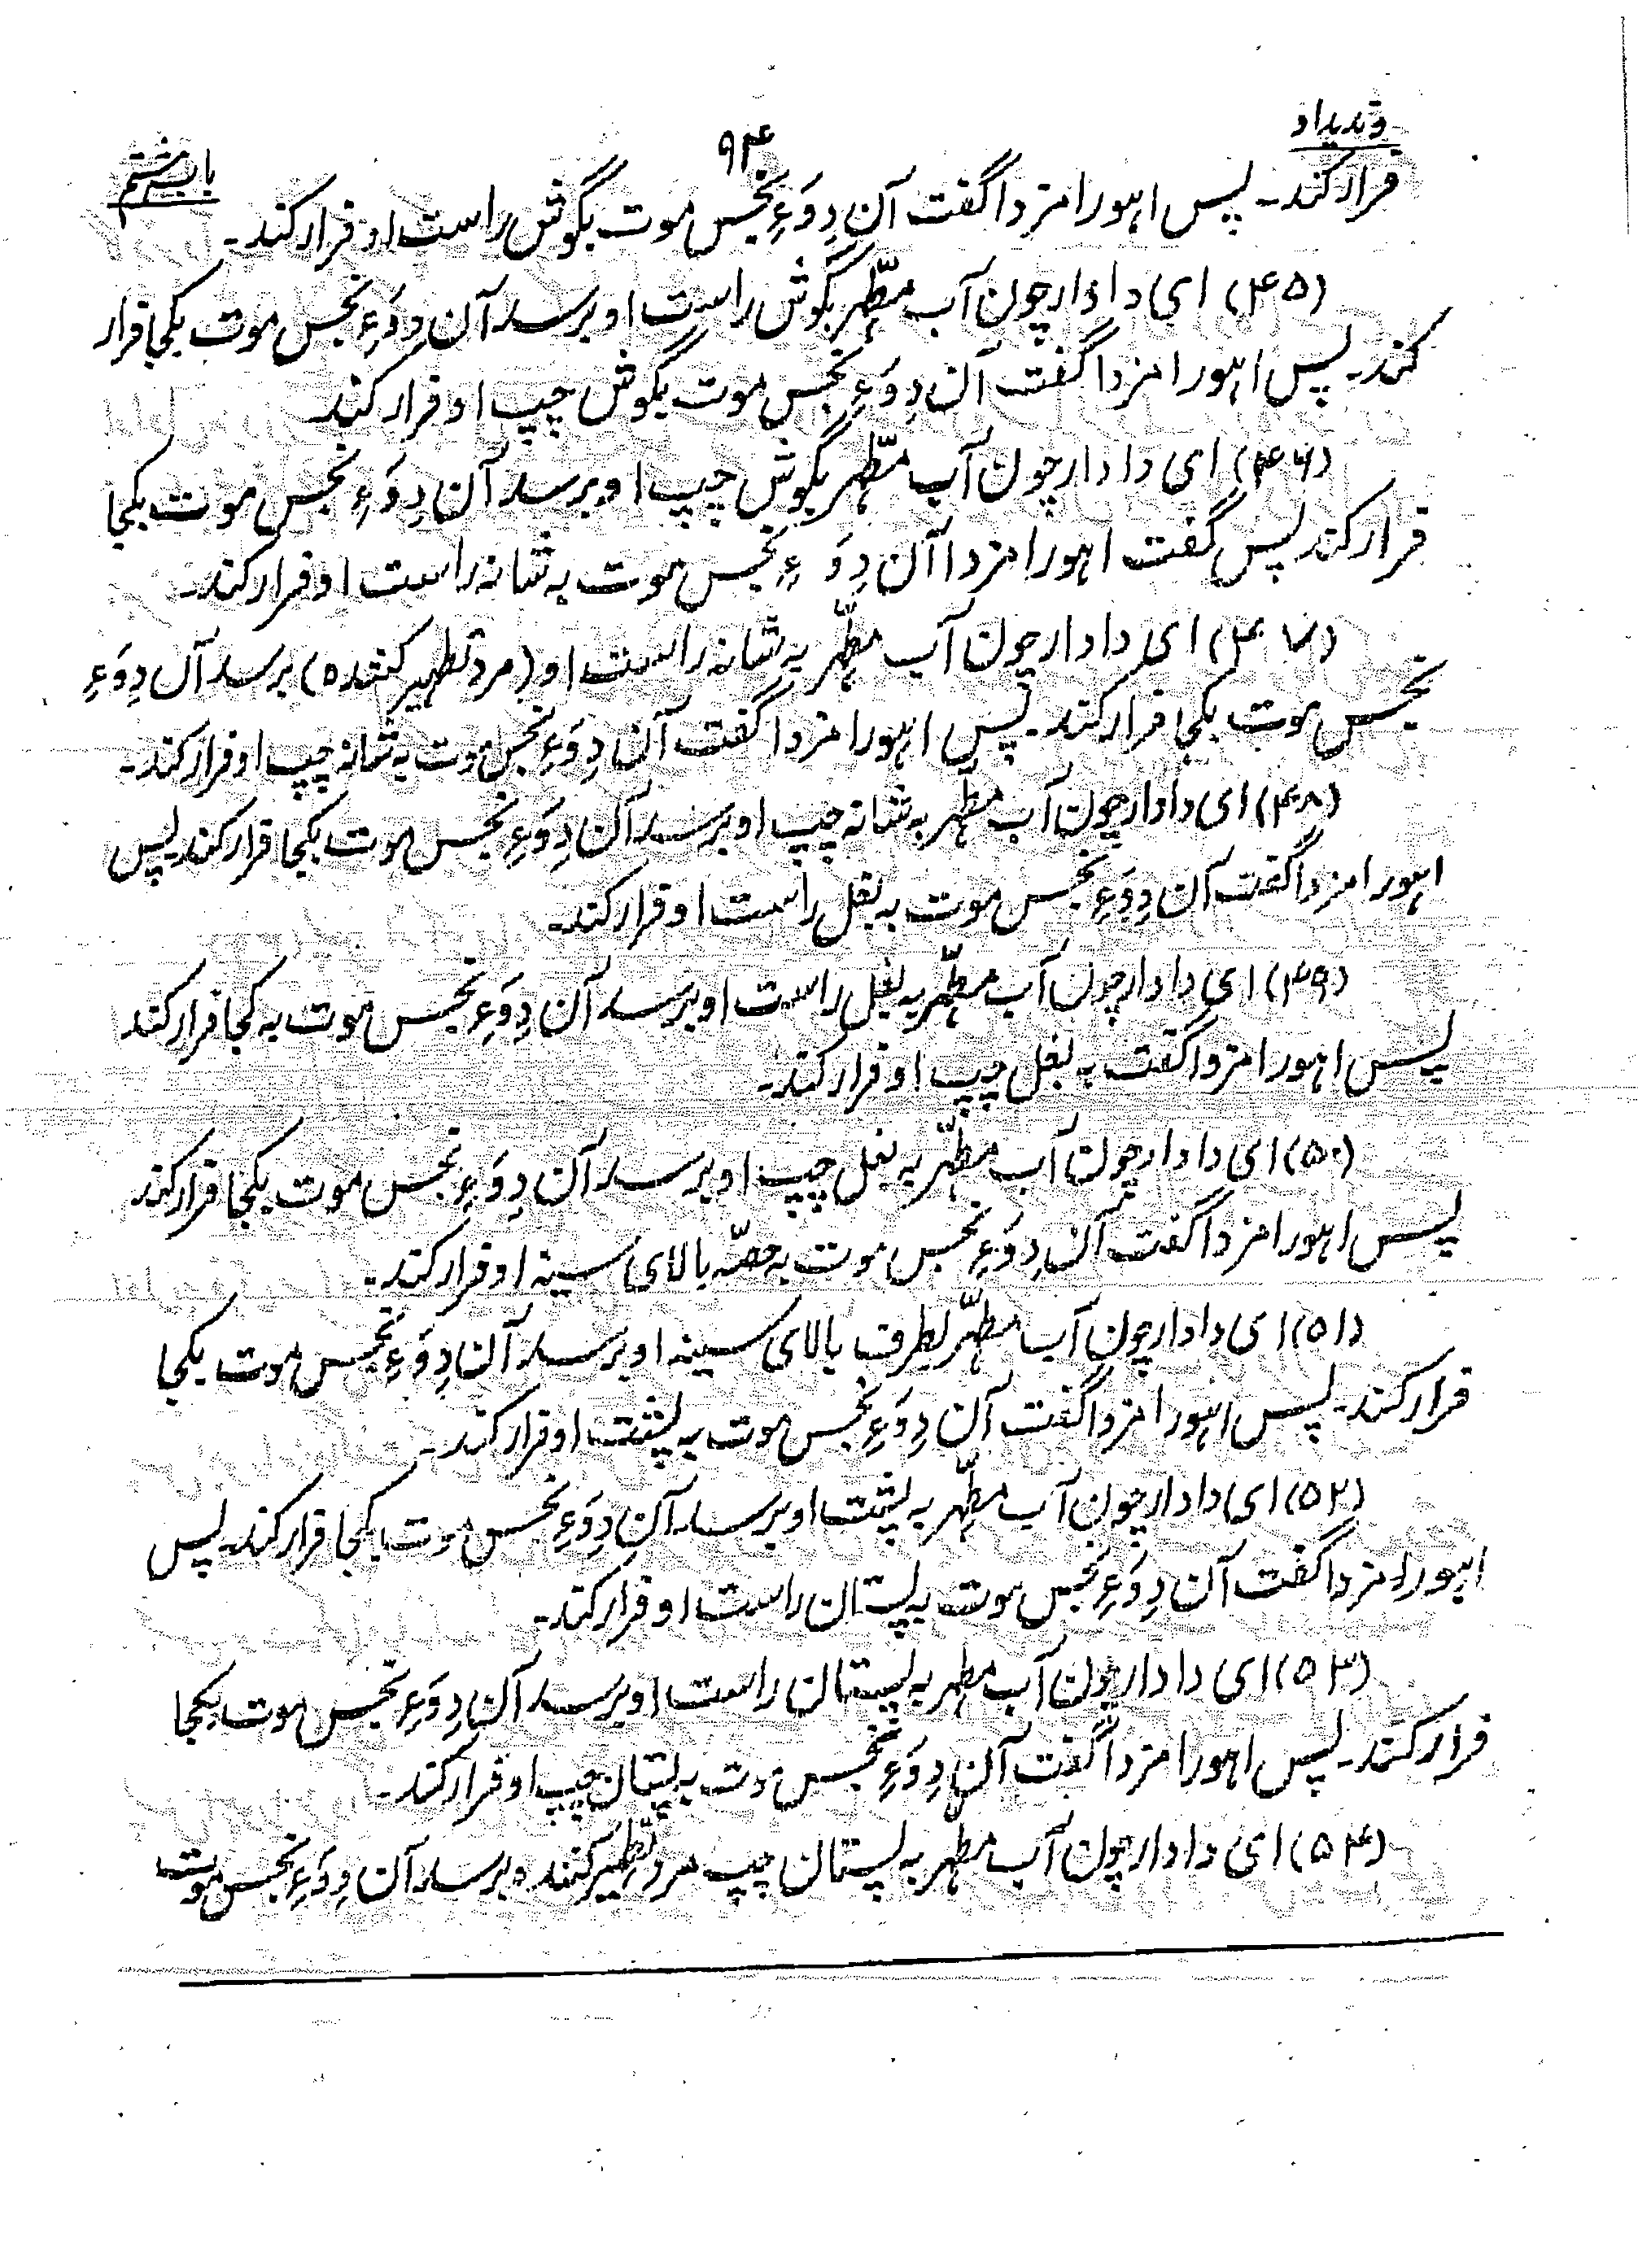 وندیداد
۹۴
باب هشتم
فرار کند۔ پس اهورا مزدا گفت آن دِوَءِ نجس موت بگوش راست او فرار کند۔
(۴۵) ای دادار چون آب مطّهر بگوش راست او برسد آن دِوَءِ نجس موت بکجا فرار
کند۔ پس اهورا مزدا گفت آن دِوَءِ نجس موت بگوش چپ او فرار کند
(۴۶) ای دادار چون آب مطّهر بگوش چپ او برسد آن دِوَءِ نجس موت بکجا
فرار کند پس گفت اهورا مزدا آن دِوَءِ نجس موت به شانه راست او فرار کند۔
(۴۷) ای دادار چون آب مطّهر به شانه راست او (مرد تطهیر کننده) برسد آن دِوَءِ
نجس موت بکجا فرار کند۔ پس اهورا مزدا گفت آن دِوَءِ نجس موت به شانه چپ او فرار کند۔
(۴۸) ای دادار چون آب مطهر به شانه چپ او برسد آن دِوَءِ نجس موت بکجا فرار کند۔ پس
اهورا مزدا گفت آن دِوَءِ نجس موت به بغل راست او فرار کند۔
(۴۹) ای دادار چون آب مطّهر به بغل راست او برسد آن دِوَءِ نجس موت به کجا فرار کند
پس اهورا مزدا گفت به بغل چپ او فرار کند۔
(۵۰) ای دادار چون آب مطّهر به بغل چپ او برسد آن دِوَءِ نجس موت بکجا فرار کند
پس اهورا مزدا گفت آن دِوَءِ نجس موت به حصّه بالای سینه او فرار کند۔
(۵۱) ای دادار چون آب مطهّر بطرف بالای سینه او برسد آن دِوَءِ نجس موت بکجا
فرار کند۔ پس اهورا مزدا گفت آن دِوَءِ نجس موت به پشت او فرار کند۔
(۵۲) ای دادار چون آب مطّهر به پشت او برسد آن دِوَءِ نجس موت بکجا فرار کند۔ پس
اهورا مزدا گفت آن دِوَءِ نجس موت به پستان راست او فرار کند۔
(۵۳) ای دادار چون آب مطهر به پستان راست او برسد آن دِوَءِ نجس موت بکجا
فرار کند۔ پس اهورا مزدا گفت آن دِوَءِ نجس موت به پستان چپ او فرار کند۔
(۵۴) ای دادار چون آب مطّهر به پستان چپ مرد تطهیر کننده برسد آن دِوَءِ نجس موت